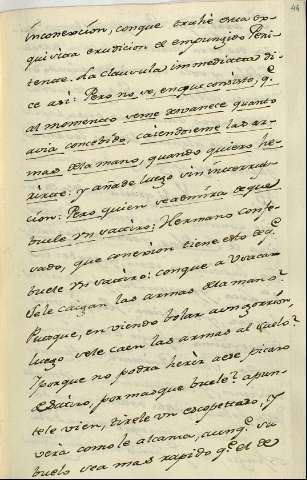 44
inconexcion, conque trahe esta ex-
quisita erudicion el empungido Peni-
tente. La clausula immediata di-
ce asi: Pero no ve, en que consiste, q.e
al momento veme dexvanece quanto
avia concebido, caiendoseme las ar-
mas de la mano, quando quiero he-
rirte: y añade luego sin interrup-
cion: Pero quien se admira de que
buele un satiro; Hermano conse-
vado, que conexion tiene esto de q.e
buele un satiro: conque a Usarced
se le caigan las armas de la mano?
Porque, en viendo bolar aun gorrion,
luego se le caen las armas al suelo?
I porque no podra herir a ese picaro
satiro, por mas que buele? apun-
tele vien, tirele un escopetazo, y
verà como le alcanza, aunq.e su
buelo sea mas rapido q.e el de